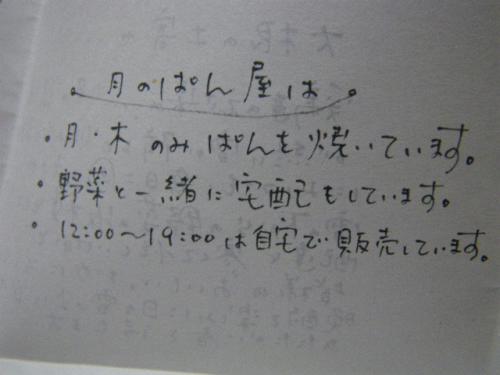 。月のぱん屋は。
・月・木のみぱんを焼いています。
・野菜と一緒に宅配もしています。
・12:00〜19:00は自宅で販売しています。